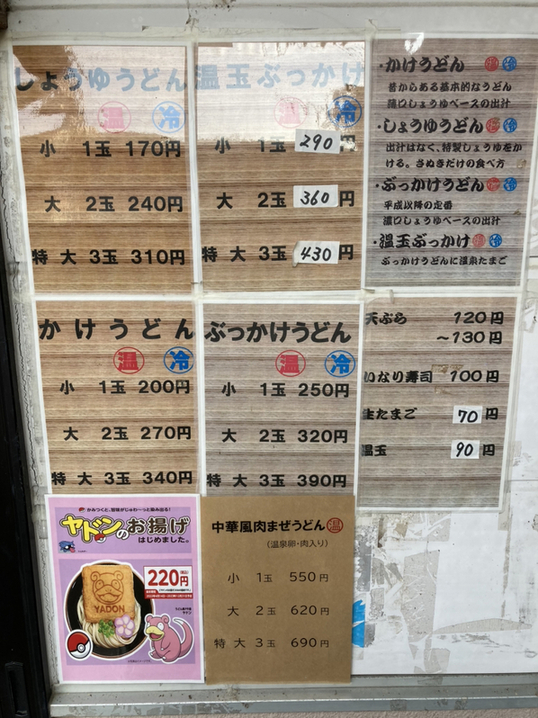 しょうゆうどん
温 冷
小 1玉 170円
大 2玉 240円
特大 3玉 310円
温玉ぶっかけ
冷
小 1玉 290円
大 2玉 360円
特大 3玉 430円
・かけうどん 温 冷
昔からある基本的なうどん
薄口しょうゆベースの出汁
・しょうゆうどん 温 冷
出汁はなく、特製しょうゆをか
ける。さぬきだけの食べ方
・ぶっかけうどん 温 冷
平成以降の定番
濃口しょうゆベースの出汁
・温玉ぶっかけ 温 冷
ぶっかけうどんに温泉たまご
かけうどん
温 冷
小 1玉 200円
大 2玉 270円
特大 3玉 340円
ぶっかけうどん
温 冷
小 1玉 250円
大 2玉 320円
特大 3玉 390円
天ぷら 120円
～130円
いなり寿司 100円
生たまご 70円
温玉 90円
ヤドンのお揚げ
はじめました。
220円
YADON
中華風肉まぜうどん 温
(温泉卵・肉入り)
小 1玉 550円
大 2玉 620円
特大 3玉 690円